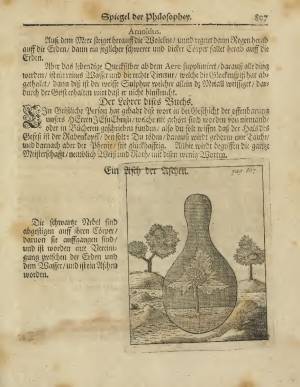 Spiegel der Philosophey. 807
Arnoldus.
Auß dem Meer steiget herauff die Wolcken / und regnet dann Regen herab
auff die Erden / dann ein jeglicher schwerer und dicker Cörper fallet herab auff die
Erden.
Aber das lebendige Quecksilber ab dem Aere / darauß alle ding
worden / ist ein reines Wasser und die rechte Tinctur / welche die
gethailet / dann diß ist der weisse Sulphur welcher allein by Metall / dar-
durch der Geist erhalten wird daß er nicht hinfleucht.
Der Lehrer diss Buchs.
Ein Göttliche Person hat gehabt ein wort in der Gesichticht der offenbarung
unsers HErren JEsu Christi / welche nie gehört sind worden von niemandt
oder in Büchern geschrieben funden / also du solt wissen daß der Haß des
Geist ist der Rabenkopff / den solt Du tödten / darauß wirdt geboren ein Taube /
und darnach aber der Phenix / seit glückhafftig. Alhie wirdt begriffen die gantze
Meisterschafft / nemblich Weiß und Roth / mit disen wenig Worten.
Ein Asch der Aschen.
pag. 807
Die schwartze Nebel sind
abgestigen auff ihren Cörper /
darvon sie auffgangen sind /
und ist worden eine Vereini-
gung zwischen der Erden und
dem Wasser / und ist ein Aschen
worden.